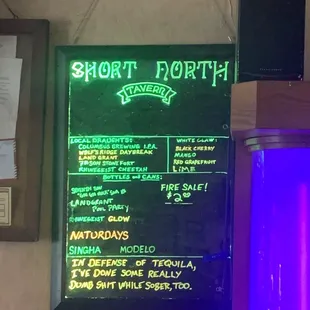 SHORT NORTH
TAVERN
LOCAL DRAUGHTS:
COLUMBUS BREWING I.P.A.
WOLF'S RIDGE DAYBREAK
LAND GRANT
RHINEGEIST CHEETAH
WHITE CLAW:
BLACK CHERRY
MANGO
RED GRAPEFRUIT
LIME
BOTTLES AND CANS:
LANDGRANT
POOL PARTY
RHINEGEIST GLOW
NATURDAYS
SINGHA MODELO
FIRE SALE!
$2.00
IN DEFENSE OF TEQUILA,
I'VE DONE SOME REALLY
DUMB SHIT WHILE SOBER, TOO.